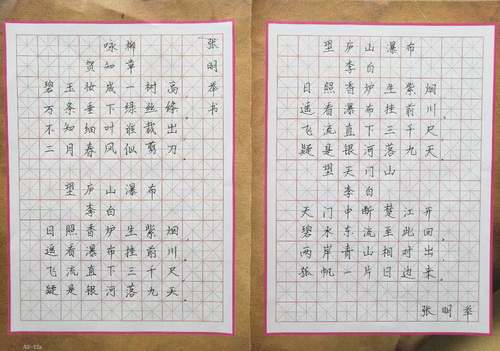 咏柳
贺知章
碧玉妆成一树高
万条垂下绿丝绦
不知细叶谁裁出
二月春风似剪刀
望庐山瀑布
李白
日照香炉生紫烟
遥看瀑布挂前川
飞流直下三千尺
疑是银河落九天
张明举书
望庐山瀑布
李白
日照香炉生紫烟
遥看瀑布挂前川
飞流直下三千尺
疑是银河落九天
望天门山
李白
天门中断楚江开
碧水东流至此回
两岸青山相对出
孤帆一片日边来
张明举